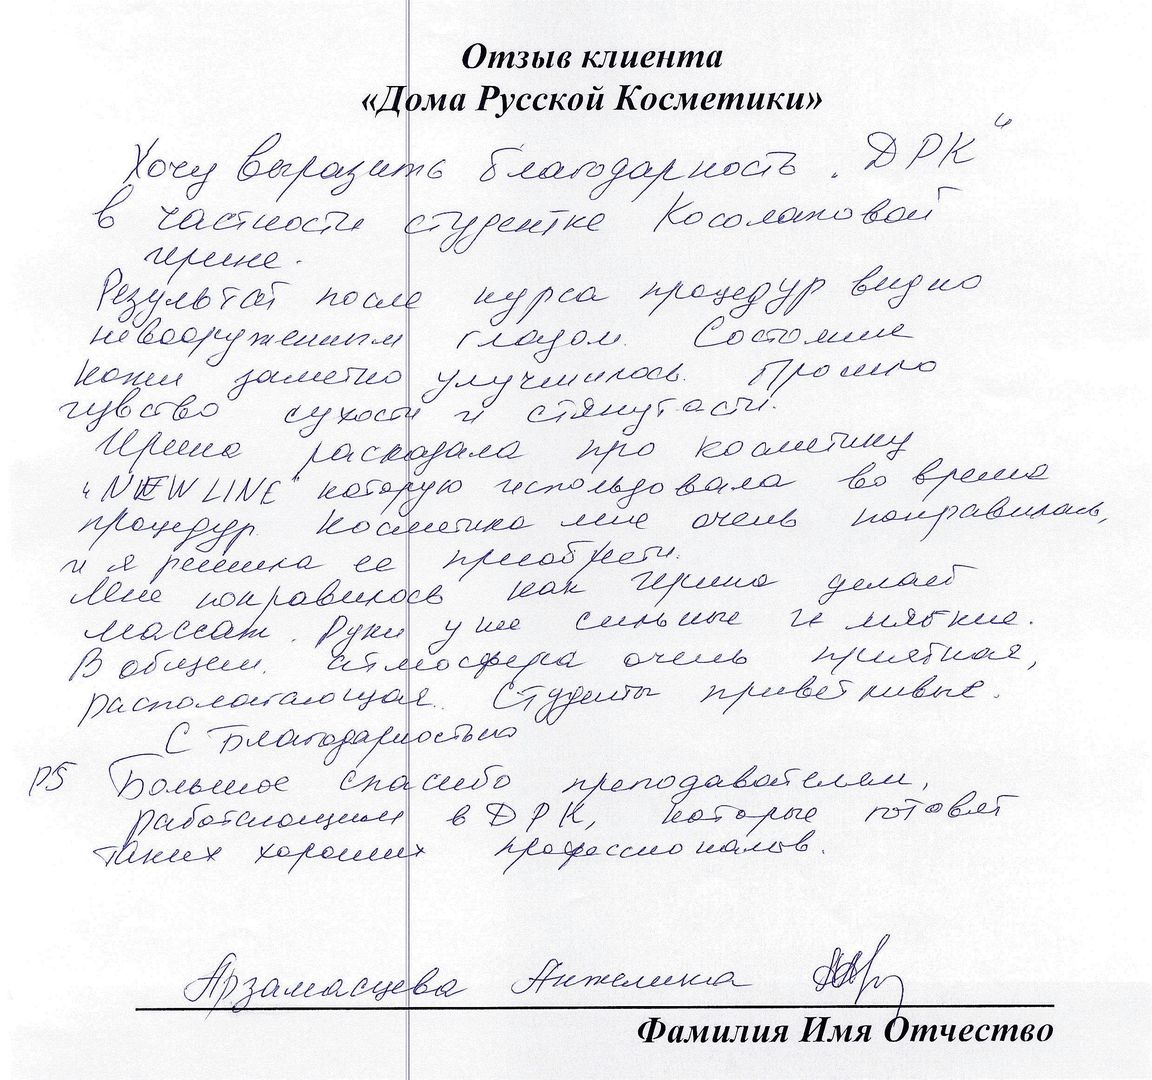 Отзыв клиента
«Дома Русской Косметики»
Хочу выразить благодарность „ДРК“
в частности студентке Косолаповой
Ирине.
Результат после курса процедур видно
невооруженным глазом. Состояние
кожи заметно улучшилось. Прошло
чувство сухости и стянутасти.
Ирина рассказала про косметику
"NEW LINE" которую использовала во время
процедур. Косметика мне очень понравилась,
и я решила ее приобрести.
Мне понравилось как Ирина делает
массаж. Руки уже сильные и мягкие.
В общем атмосфера очень приятная,
располагающая. Студенты приветливые.
С Благодарностью
PS Большое спасибо преподавателям,
работающим в ДРК, которые готовят
таких хороших профессионалов.
Арзамасцева Анжелика
Фамилия Имя Отчество